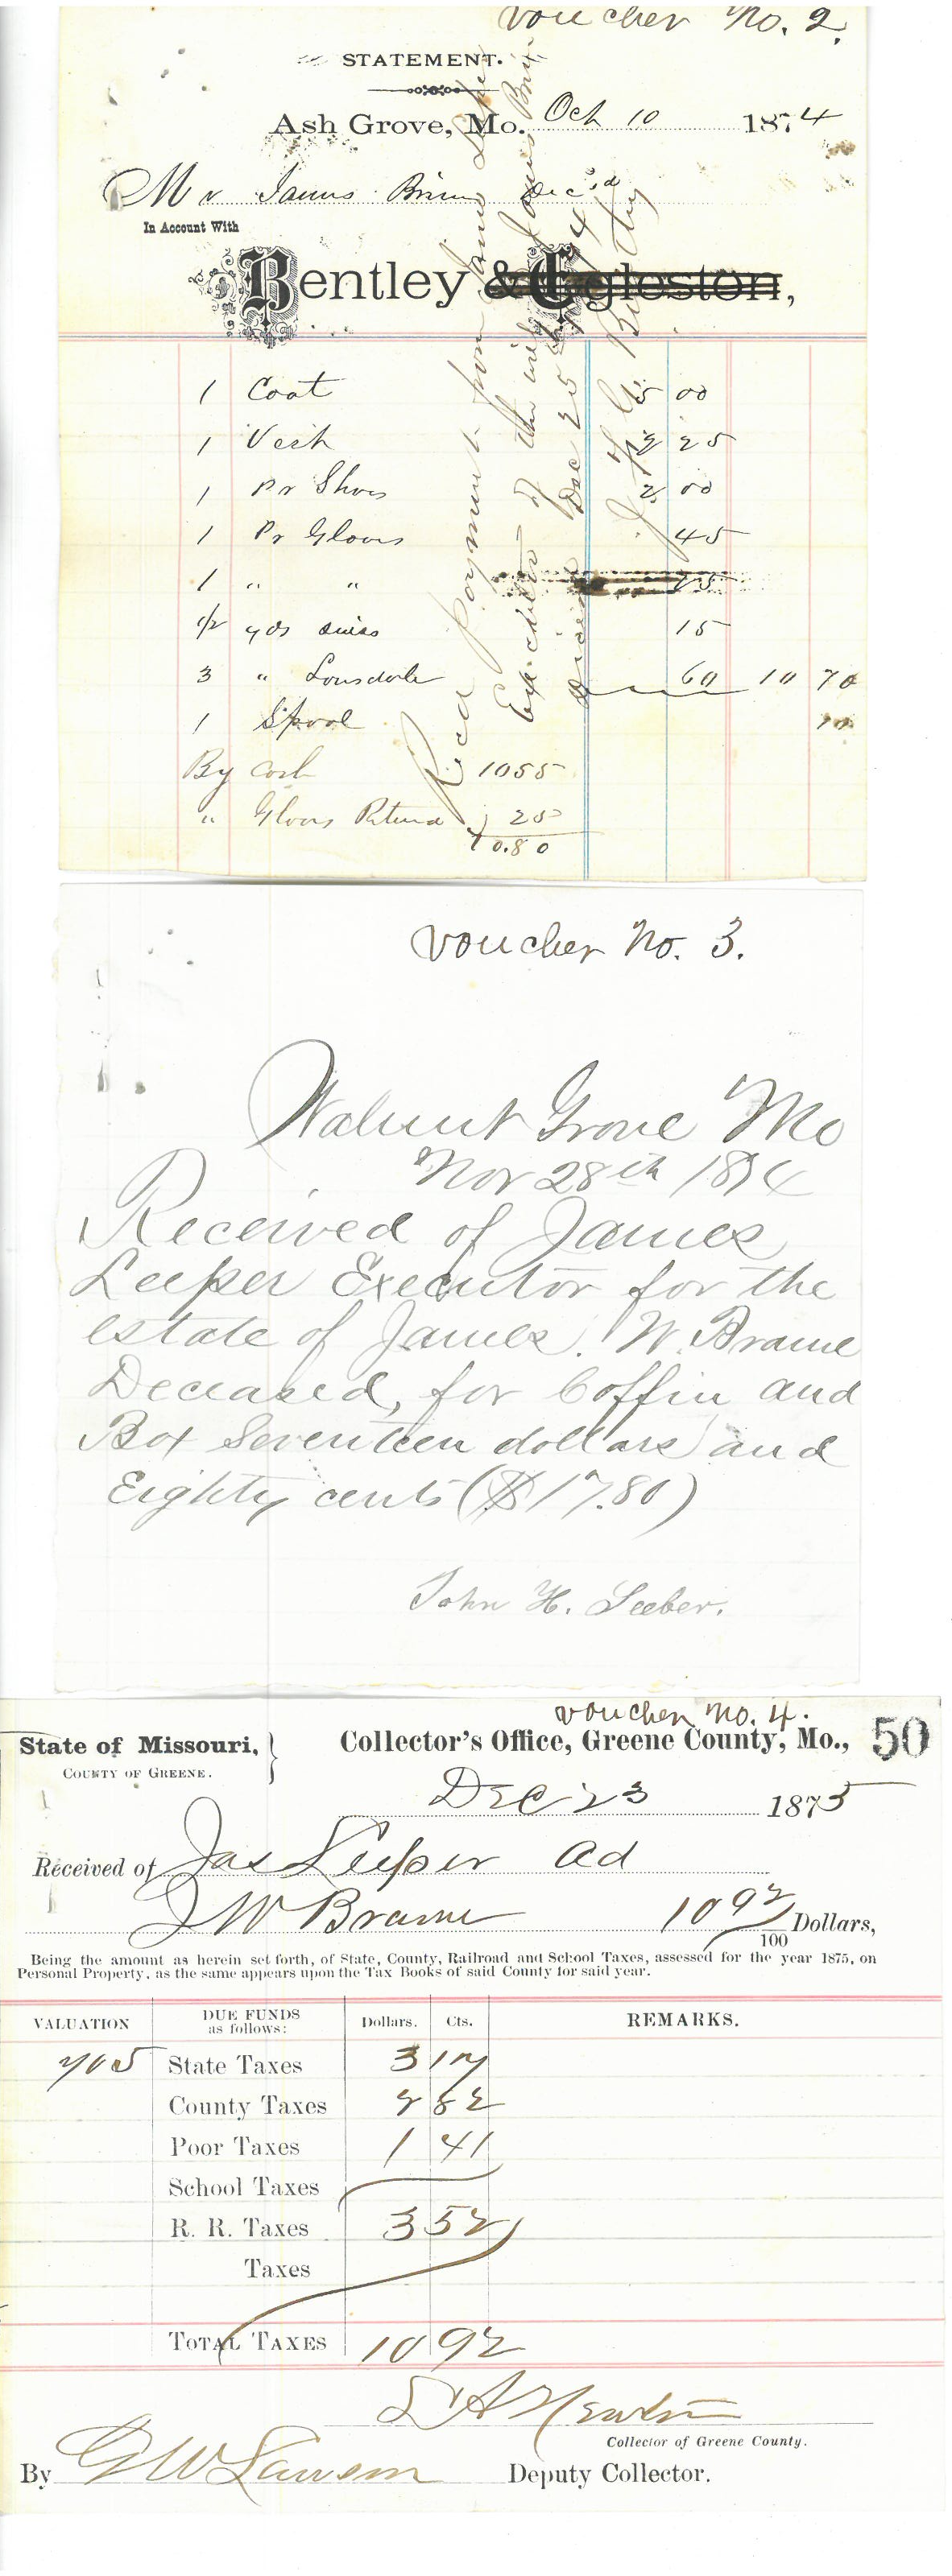 Voucher No. 2.
STATEMENT.
Ash Grove, Mo. Oct 10 1874
Mr James Brim Dec'd
In Account With
Bentley & Egleston,
1 Coat 5 00
1 Vest 2 25
1 Pr Shoes 2 00
1 Pr Gloves 45
1 " " 25
1/2 yds swiss 15
3 " Lonsdale 60 10 70
1 Spool 10
By Cash 1055
" Gloves Returnd 25
10.80
Recd payment from James Leeper
Executor of the will of James Brim
Deceased Dec 25th 1874
J. G. Bentley
Voucher No. 3.
Walnut Grove Mo
Nov 28th 1874
Received of James
Leeper Executor for the
estate of James. W. Brame
Deceased, for Coffin and
Box Seventeen dollars and
Eighty cents ($17.80)
John H. Leeber.
Voucher No. 4.
State of Missouri,
COUNTY OF GREENE.
Collector's Office, Greene County, Mo., 50
Dec 23 1875
Received of Jas Leeper Ad
J W Brame 10 92/100 Dollars,
Being the amount as herein set forth, of State, County, Railroad and School Taxes, assessed for the year 1875, on
Personal Property, as the same appears upon the Tax Books of said County for said year.
VALUATION DUE FUNDS as follows: Dollars. Cts. REMARKS.
705 State Taxes 3 17
County Taxes 2 82
Poor Taxes 1 41
School Taxes
R. R. Taxes 3 52
Taxes
TOTAL TAXES 10 92
Collector of Greene County.
By G W Lawson Deputy Collector.